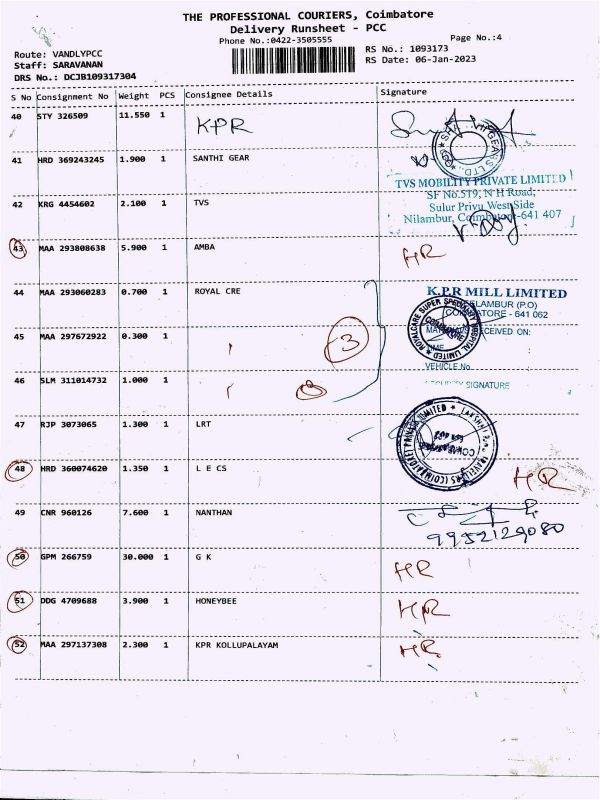 THE PROFESSIONAL COURIERS, Coimbatore
Delivery Runsheet - PCC
Phone No.:0422-3505555
Page No.:4
Route: VANDLYPCC
RS No.: 1093173
Staff: SARAVANAN
RS Date: 06-Jan-2023
DRS No.: DCJB109317304
S No Consignment No Weight PCS Consignee Details Signature
40 STY 326509 11.550 1 KPR
41 HRD 369243245 1.900 1 SANTHI GEAR
TVS MOBILITY PRIVATE LIMITED
SF No.519, N H Road,
42 KRG 4454602 2.100 1 TVS
Sulur Privu West Side
Nilambur, Coimbatore-641 407
43 MAA 293808638 5.900 1 AMBA HR
44 MAA 293060283 0.700 1 ROYAL CRE
K.P.R MILL LIMITED
NEELAMBUR (P.O)
COIMBATORE - 641 062
45 MAA 297672922 0.300 1 3
RECEIVED ON:
VEHICLE No.
46 SLM 311014732 1.000 1
SECURITY SIGNATURE
47 RJP 3073065 1.300 1 LRT
48 HRD 360074620 1.350 1 L E CS HR
49 CNR 960126 7.600 1 NANTHAN
9952129080
50 GPM 266759 30.000 1 G K HR
51 DDG 4709688 3.900 1 HONEYBEE HR
52 MAA 297137308 2.300 1 KPR KOLLUPALAYAM HR